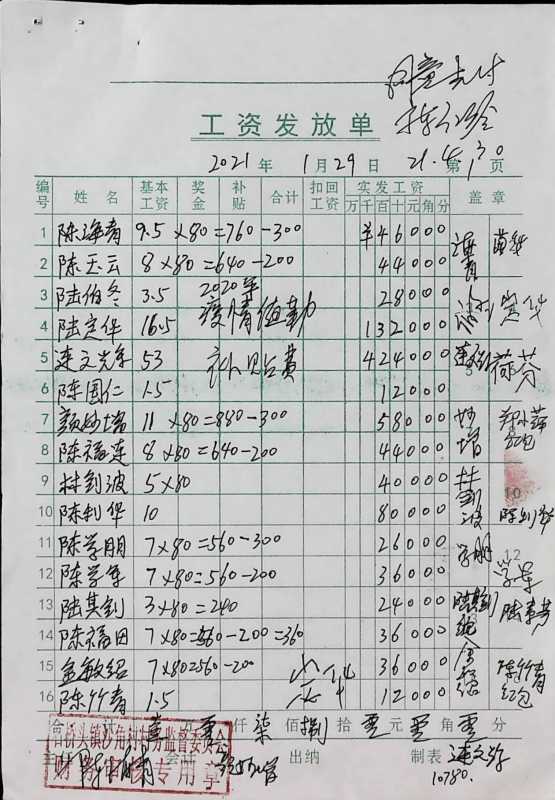 同意支付
工资发放单
2021年 1月29日 第 页
21.4.30
编号 姓名 基本工资 奖金 补贴 合计 扣回工资 实发工资 万千百十元角分 盖章
1 陈海青 9.5×80=760-300 ¥46000
2 陈玉云 8×80=640-200 44000
3 陆伯冬 3.5 2020年 28000
4 陆定华 16.5 疫情值勤 132000
5 连文先等 53 补贴费 424000
6 陈国仁 1.5 12000
7 颜妙增 11×80=880-300 58000 妙增
8 陈福连 8×80=640-200 44000 红包
9 林剑波 5×80 40000 林剑波
10 陈利华 10 80000
11 陈学朋 7×80=560-300 26000 学朋
12 陈学军 7×80=560-200 36000 学军
13 陆其钊 3×80=240 24000 陆其钊
14 陈福田 7×80=560-200=360 36000
15 金敏绍 7×80=560-200 36000
16 陈竹青 1.5 12000 陈竹青 红包
合计 万 壹 仟 柒 佰 捌 拾 零 元 零 角 零 分
桥头镇沙角村村务监督委员会
财务审核专用章
出纳 制表
10780.